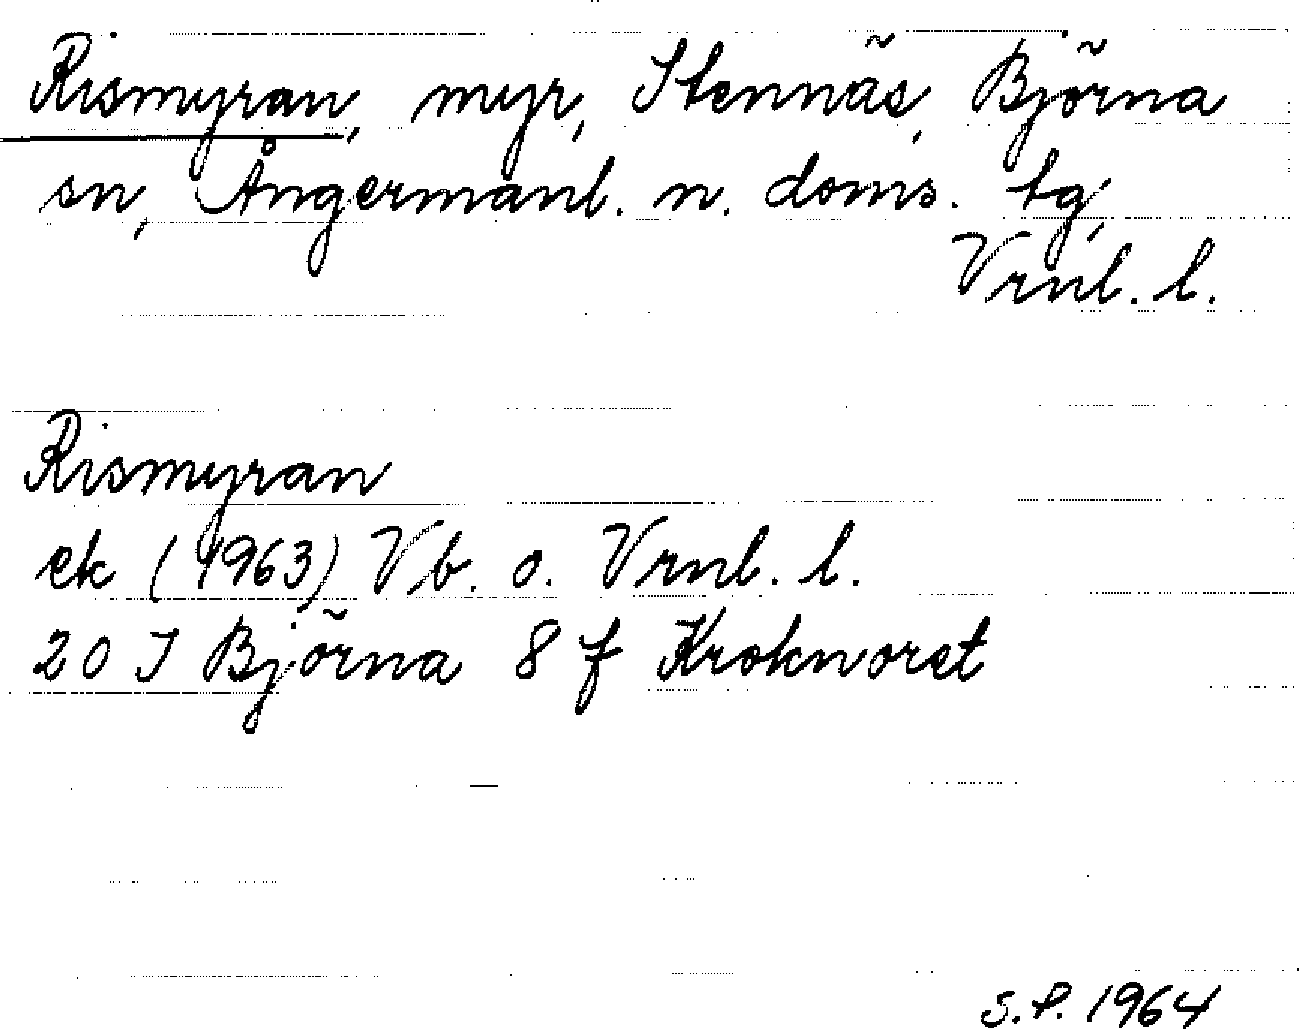 Rismyran, myr, Stennäs, Björna
sn, Ångermanl. n. doms. tg,
Vrnl. l.
Rismyran
ek (1963) Vb. o. Vrnl. l.
20 J Björna 8 f Kroknoret
S.P. 1964